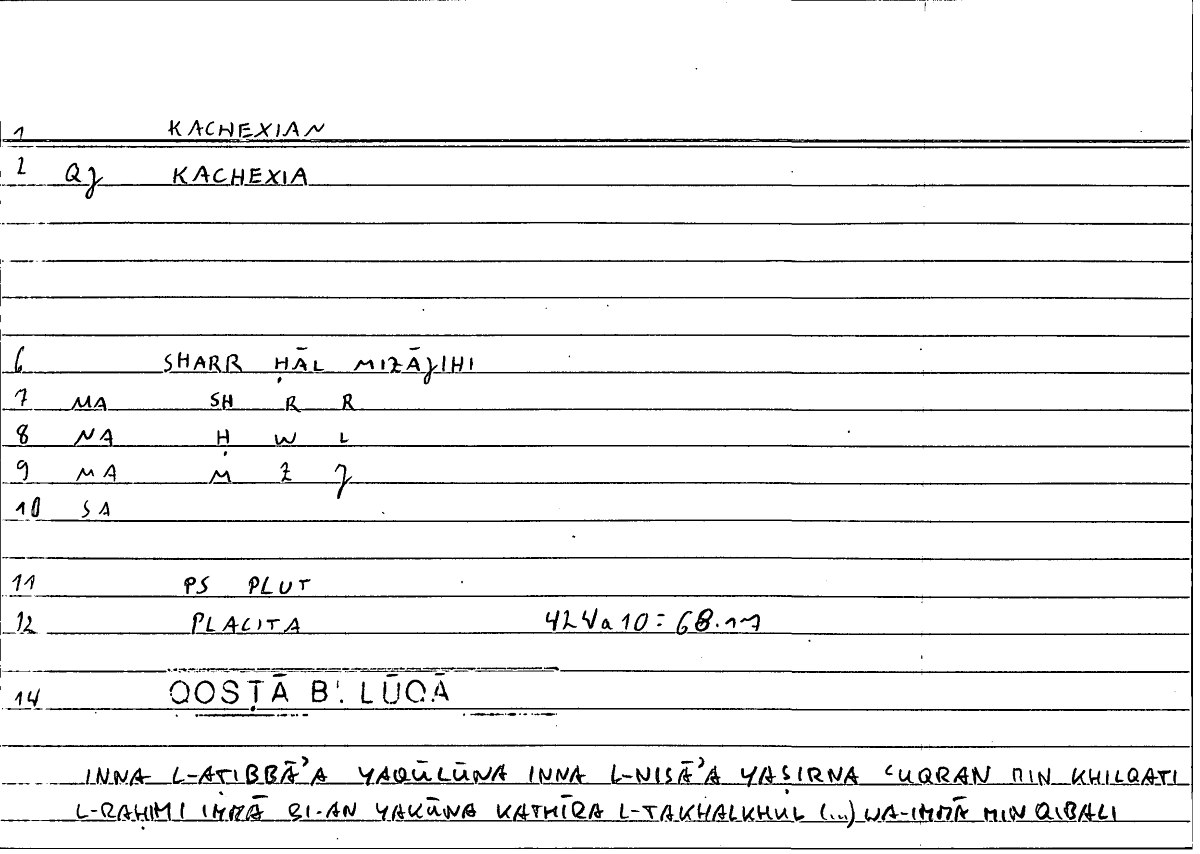 1 KACHEXIAN
2 QJ KACHEXIA
6 SHARR ḤĀL MIZĀJIHI
7 MA SH R R
8 NA Ḥ W L
9 MA M Z J
10 SA
11 PS PLUT
12 PLACITA 424a10 = 68.17
14 QOSṬĀ B. LŪQĀ
INNA L-AṬIBBĀ’A YAQŪLŪNA INNA L-NISĀ’A YAṢIRNA ‘UQRAN MIN KHILQATI
L-RAḤIMI IMMĀ BI-AN YAKŪNA KATHĪRA L-TAKHALKHUL (...) WA-IMMĀ MIN QIBALI